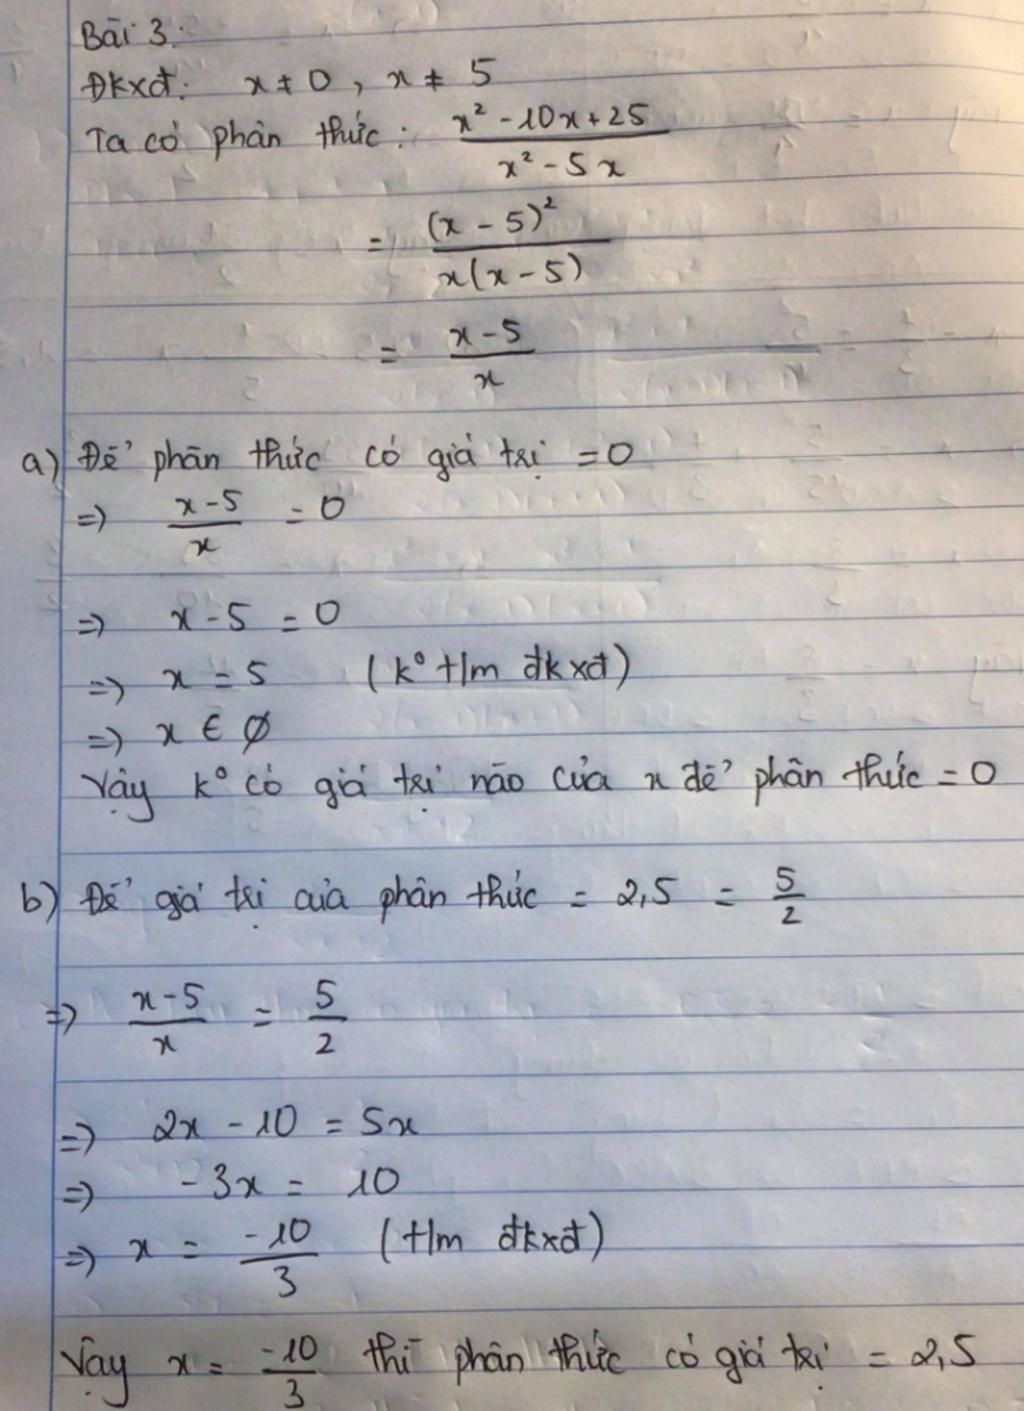 Bài 3:
Đkxđ: x ≠ 0, x ≠ 5
Ta có phân thức: (x² - 10x + 25)/(x² - 5x)
= (x - 5)²/(x(x - 5))
= (x - 5)/x
a) Để phân thức có giá trị = 0
=> (x - 5)/x = 0
=> x - 5 = 0
=> x = 5 (k° t/m đkxđ)
=> x ∈ ∅
Vậy k° có giá trị nào của x để phân thức = 0
b) Để giá trị của phân thức = 2,5 = 5/2
=> (x - 5)/x = 5/2
=> 2x - 10 = 5x
=> -3x = 10
=> x = -10/3 (t/m đkxđ)
Vậy x = -10/3 thì phân thức có giá trị = 2,5